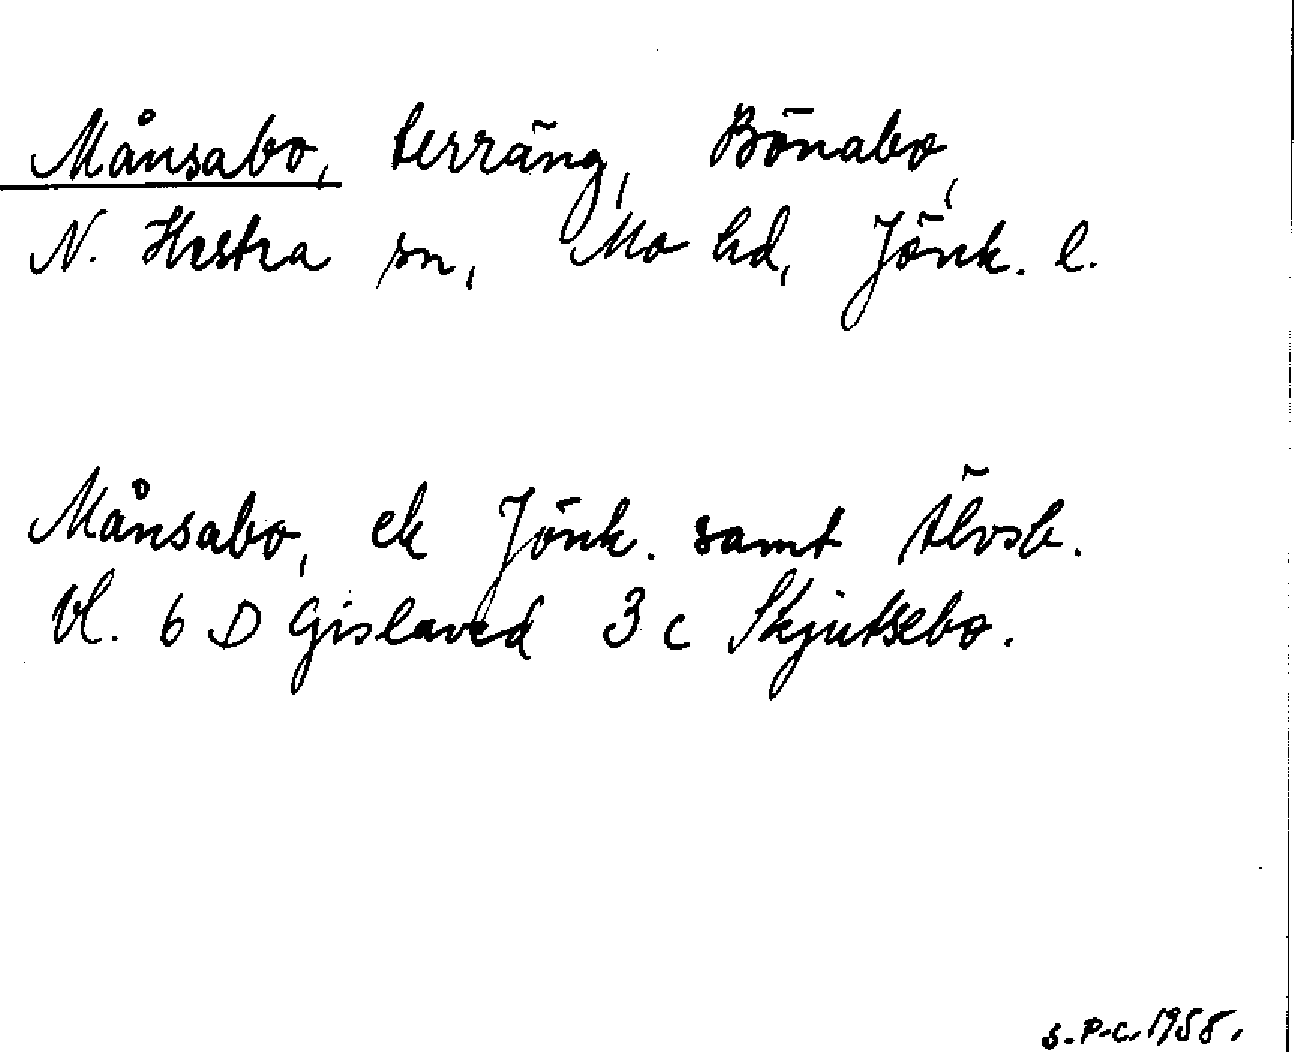 Månsabo, terräng, Bönabo,
N. Hestra sn, Mo hd, Jönk. l.
Månsabo, ek Jönk. samt Älvsb.
bl. 6 D Gislaved 3 c Skjutsebo.
S.P-C. 1958.